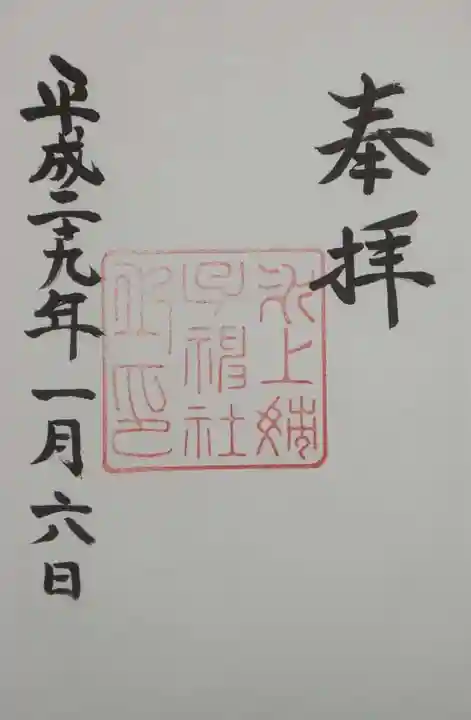 奉拝
氷上姉
子神社
印
平成二十九年一月六日